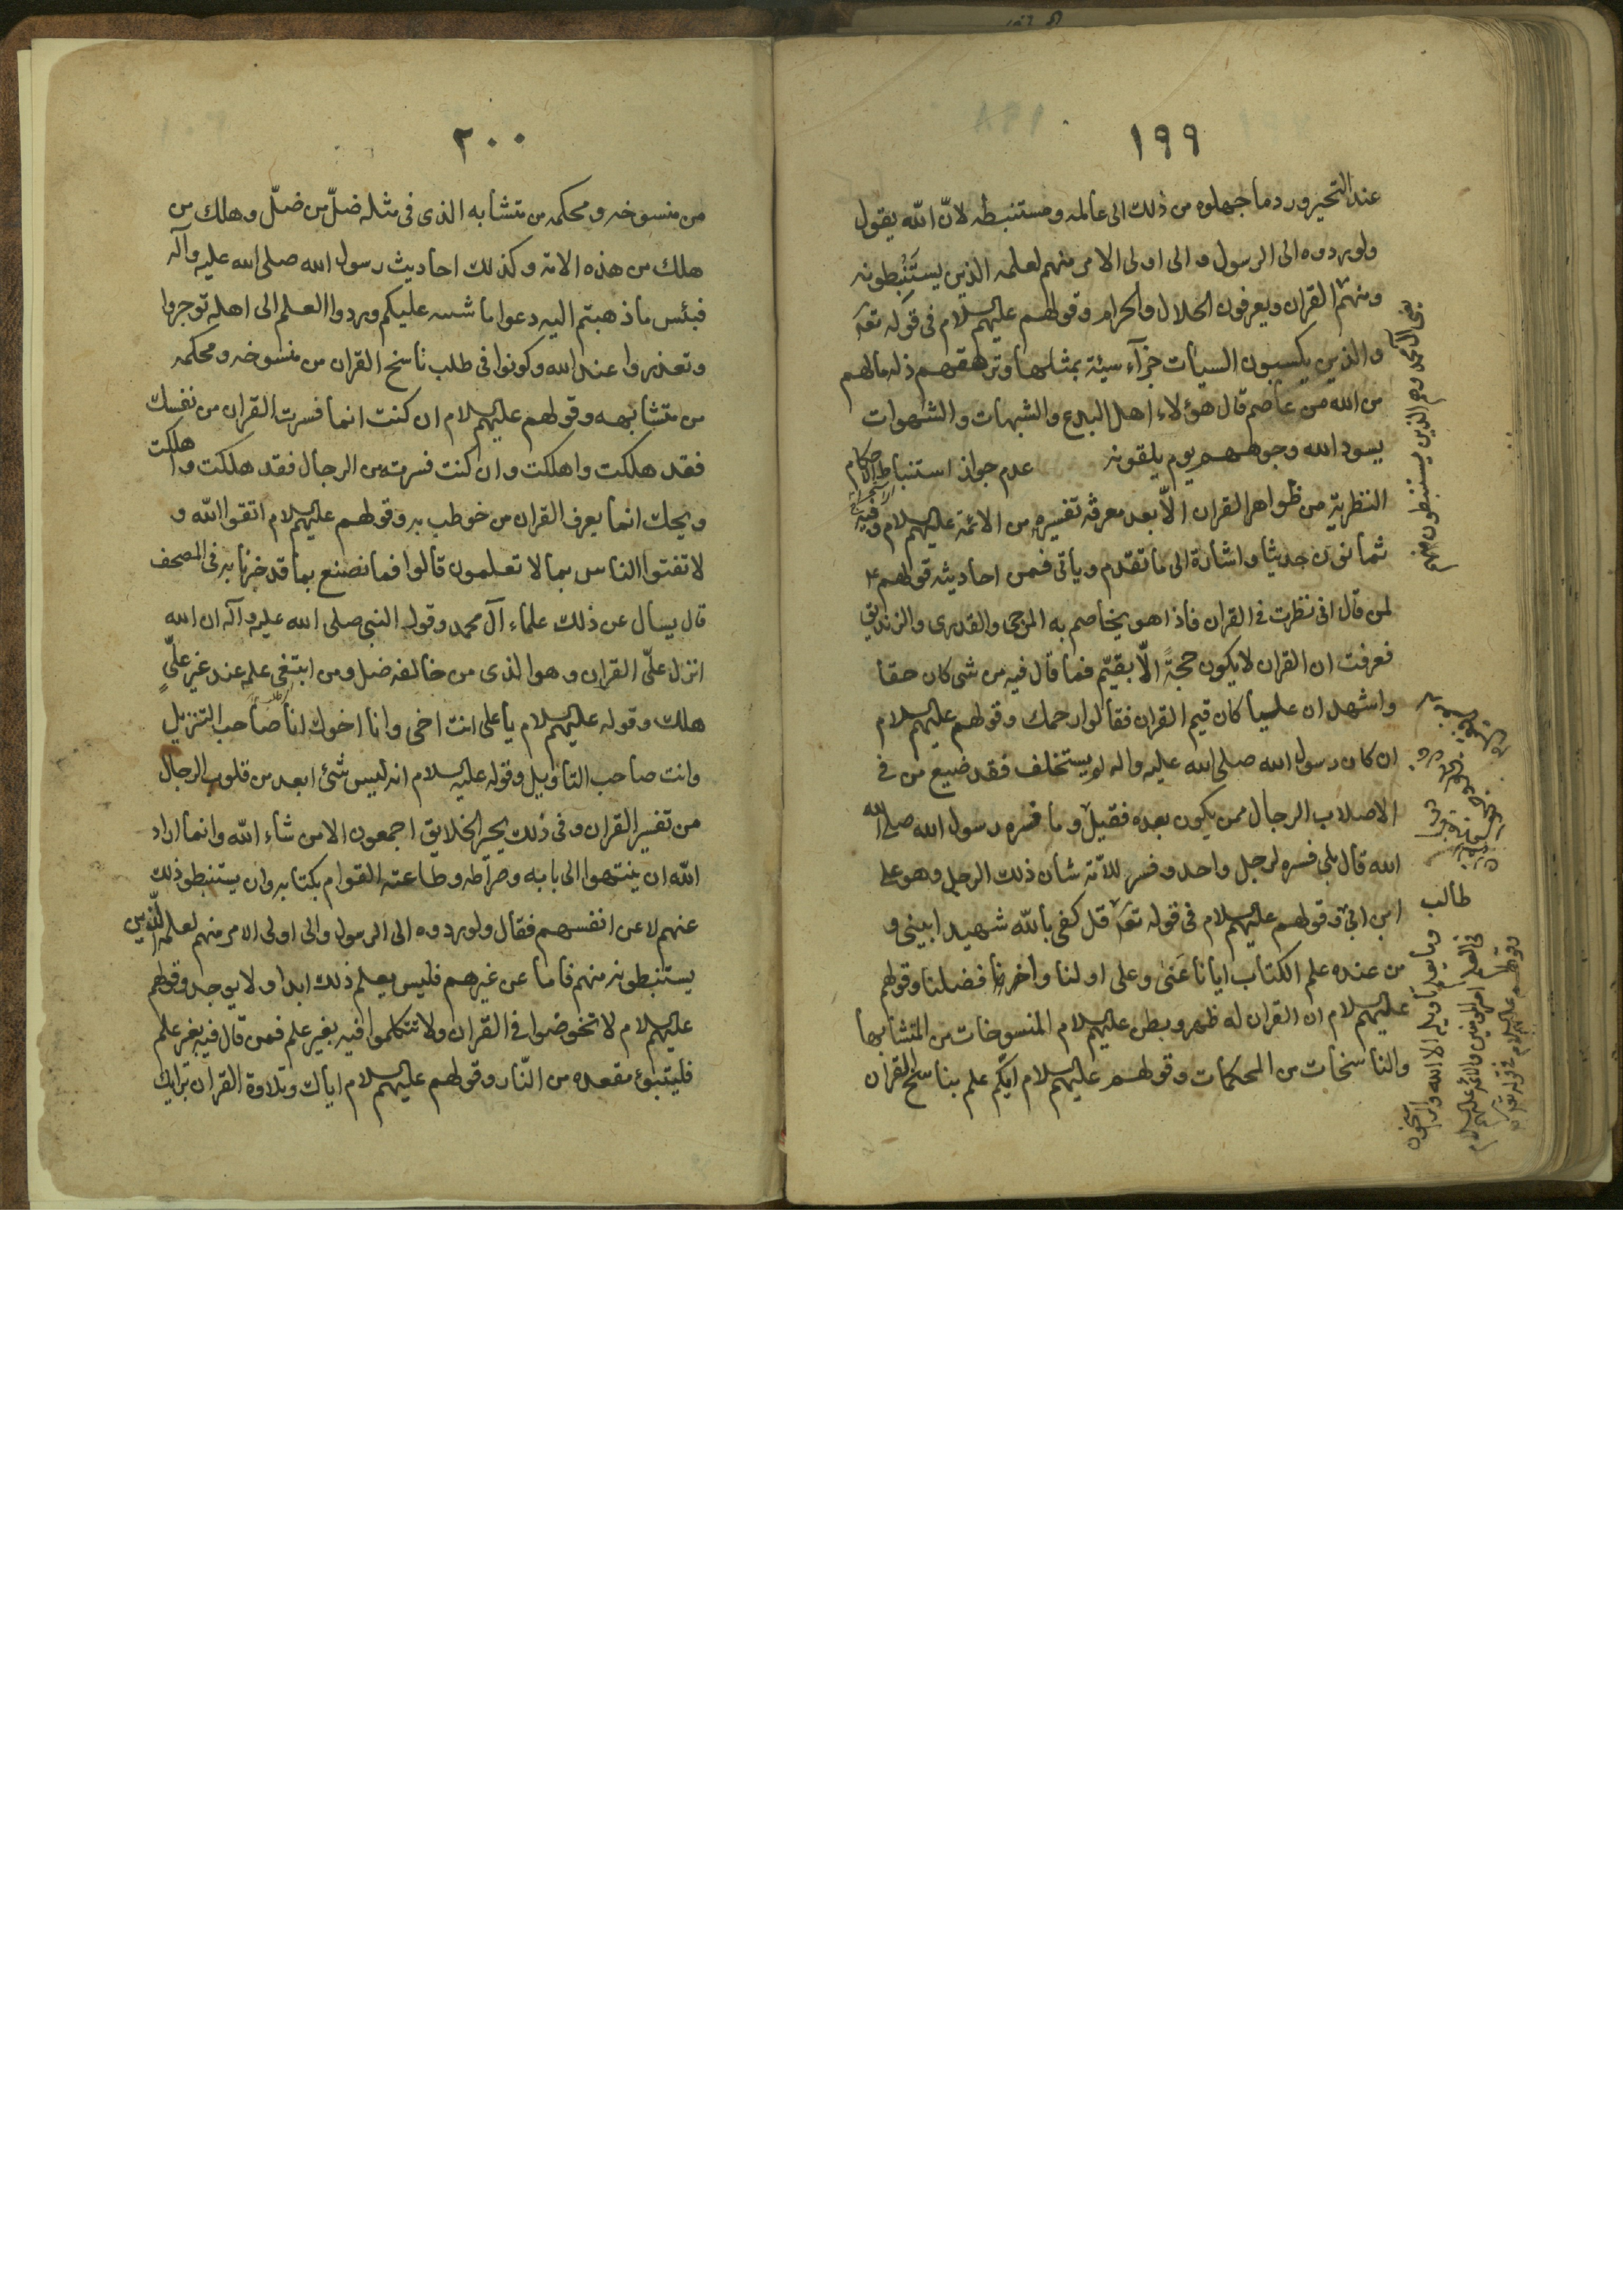 ١٩٩
عند التحير ورد ما جهلوه من ذلك الى عالمه ومستنبطه لانّ الله يقول
ولو ردوه الى الرسول و الى اولى الامر منهم لعلمه الذين يستَنْبطونه
ومنهم القران ويعرفون الحلال والحرام وقولهم عليهم السلام فى قوله تعه
والذين يكسبون السيأت جزآء سيئة بمثلها وترهقهم ذله مالهم
من الله من عاصم قال هؤلاء اهل البدع والشبهات والشهوات
يسود الله وجوههم يوم يلقونه عدم جواز استنباط الاحكام
النظرية من ظواهر القران الّا بعد معرفة تفسيره من الائمة عليهم السلام وفيه
ثمانون حديثا واشارة الى ما تقدم وياتى فمن احاديثه قولهم ٤
لمن قال انى نظرت فى القران فاذا هو يخاصم به المرجى والقدرى والزنديق
فعرفت ان القران لا يكون حجةً الّا بقيّم فما قال فيه من شى كان حقا
واشهد ان عليا كان قيم القران فقالوا رحمك وقولهم عليهم السلام
ان كان رسول الله صلى الله عليه واله لم يستخلف فقد ضيع من فى
الاصلاب الرجال ممن يكون بعده فقيل وما فسره رسول الله صلى الله
الله قال بلى فسره لرجل واحد وفسر للامّة شان ذلك الرجل وهو على
طالب
ابن ابى وقولهم عليهم السلام فى قوله تعه قل كفى بالله شهيدا بينى و
من عنده علم الكتاب ايانا عَنىٰ وعلى اولنا واخرنا فضلنا وقولهم
عليهم السلام ان القران له ظهر وبطن عليهم السلام المنسوخات من المتشابها
والناسخات من المحكمات وقولهم عليهم السلام ايكم علم بناسخ القران
آل محمد وهم الذين يستنبطون منهم
وما يعلم تاويله الا الله والراسخون
فى العلم امير المؤمنين والائمة عليهم السلام
وقولهم عليهم السلام فى قوله تعه
٢٠٠
من منسوخه ومحكمه من متشابه الذى فى مثله ضلّ من ضلّ وهلك من
هلك من هذه الامة وكذلك احاديث رسول الله صلى الله عليه وآله
فبئس ما ذهبتم اليه دعوا ما عليكم وردوا العلم الى اهله توجروا
وتعذروا عند الله وكونوا فى طلب ناسخ القران من منسوخه ومحكمه
من متشابهه وقولهم عليهم السلام ان كنت انما فسرت القران من نفسك
فقد هلكت واهلكت وان كنت فسرته من الرجال فقد هلكت واهلكت
ويحك انما يعرف القران من خوطب به وقولهم عليهم السلام اتقوا الله و
لا تفتوا الناس بما لا تعلمون قالوا فما نصنع بما قد خبرنا به فى المصحف
قال يسال عن ذلك علماء آل محمد وقول النبى صلى الله عليه وآله ان الله
انزل علىّ القران وهو الذى من خالفه ضل ومن ابتغى علمه عند غير علىّ
هلك وقوله عليهم السلام يا على انت اخى وانا اخوك انا صاحب التنزيل
وانت صاحب التاويل وقوله عليه السلام انه ليس شئ ابعد من قلوب الرجال
من تفسير القران وفى ذلك يحير الخلايق اجمعون الا من شاء الله وانما اراد
الله ان ينتهوا الى بابه وصراطه وطاعته القوام بكتابه وان يستنبطو ذلك
عنهم لا عن انفسهم فقال ولو ردوه الى الرسول والى اولى الامر منهم لعلمه الذين
يستنبطونه منهم فاما عن غيرهم فليس يعلم ذلك ابدا ولا يوجد وقولهم
عليهم السلام لا تخوضوا فى القران ولا تتكلموا فيه بغير علم فمن قال فيه بغير علم
فليتبوئ مقعده من النّار وقولهم عليهم السلام اياك وتلاوة القران برايك